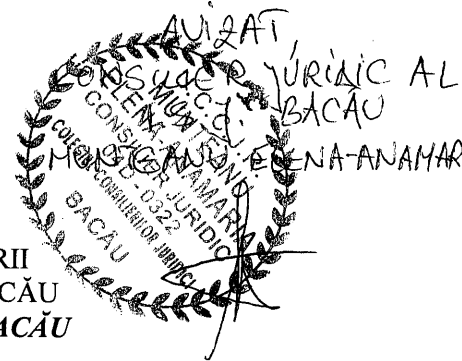 AVIZAT,
CONSILIER JURIDIC AL
BACĂU
MUNTEANU ELENA-ANAMAR
MUNTEANU
ELENA-ANAMARIA
CONSILIER JURIDIC
0322
COLEGIUL CONSILIERILOR JURIDICI
BACĂU
RII
CĂU
ACĂU